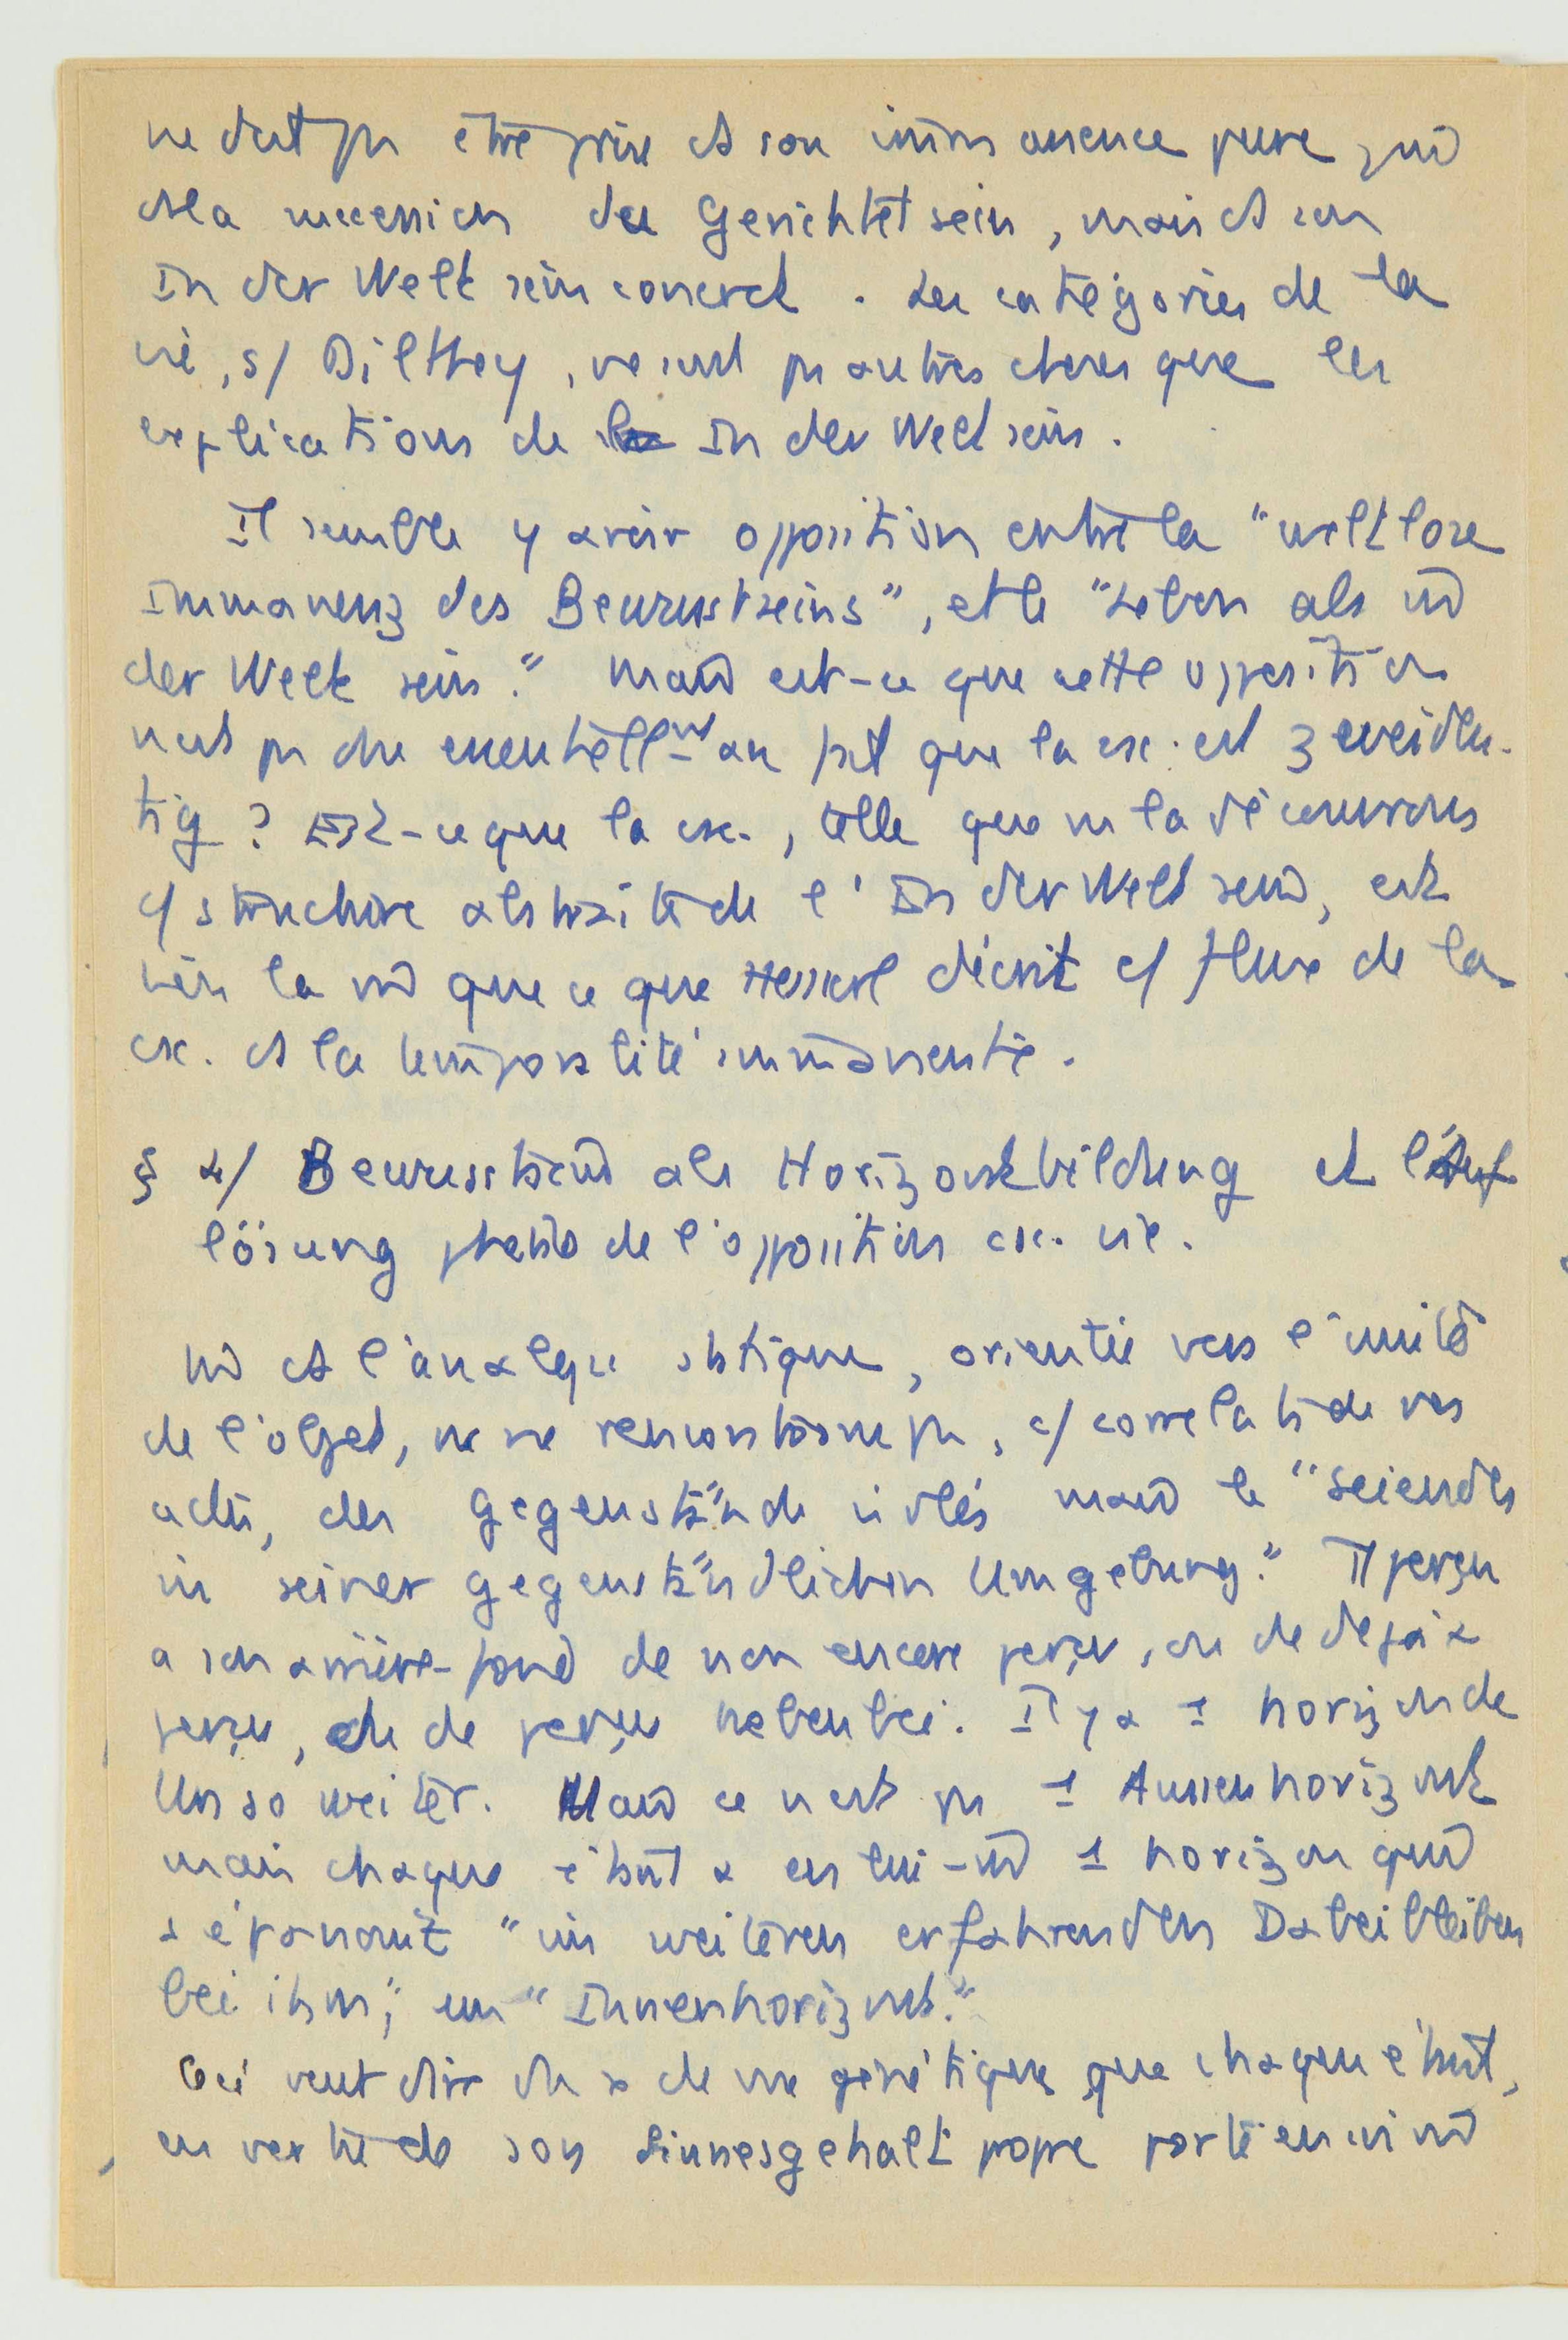 ne doit pas être prise ds son immanence pure
ds la succession du Gerichtetsein, mais ds son
In der Welt sein concret. Les catégories de la
vie, s/ Dilthey, ne sont pas autres choses que les
explications de In der Welt sein.
Il semble y avoir opposition entre la "weltlose
Immanenz des Bewusstseins", et le "Leben als in
der Welt sein." Mais est-ce que cette opposition
n'est pas due essentiellmt au fait que la csc. est zweideu-
tig ? Est-ce que la csc., telle que ns la découvrons
c/ structure abstraite de l'In der Welt sein, est
bien la mê que ce que Husserl décrit c/ flux de la
csc. ds la temporalité immanente.
§ 4/ Bewusstsein als Horizontbildung et l'Auf
lösung de l'opposition csc. vie.
ds l'analyse statique, orientée vers l'unité
de l'objet, ns ne rencontrons pas, c/ correlatif de nos
actes, des Gegenstände isolés mais le "Seiendes
in seiner gegenständlichen Umgebung." Tt perçu
a son arrière-fond de non encore perçu, ou de déjà
perçu, ou de perçu nebenbei. Il y a 1 horizon de
Un so weiter. Mais ce n'est pas 1 Aussenhorizont
mais chaque étant a en lui-mê 1 horizon qui
s'épanouit "im weiteren erfahrenden Dabeibleiben
bei ihm", un "Innenhorizont."
Ceci veut dire de vue génétique que chaque étant,
en vertu de son Sinnesgehalt propre porte en